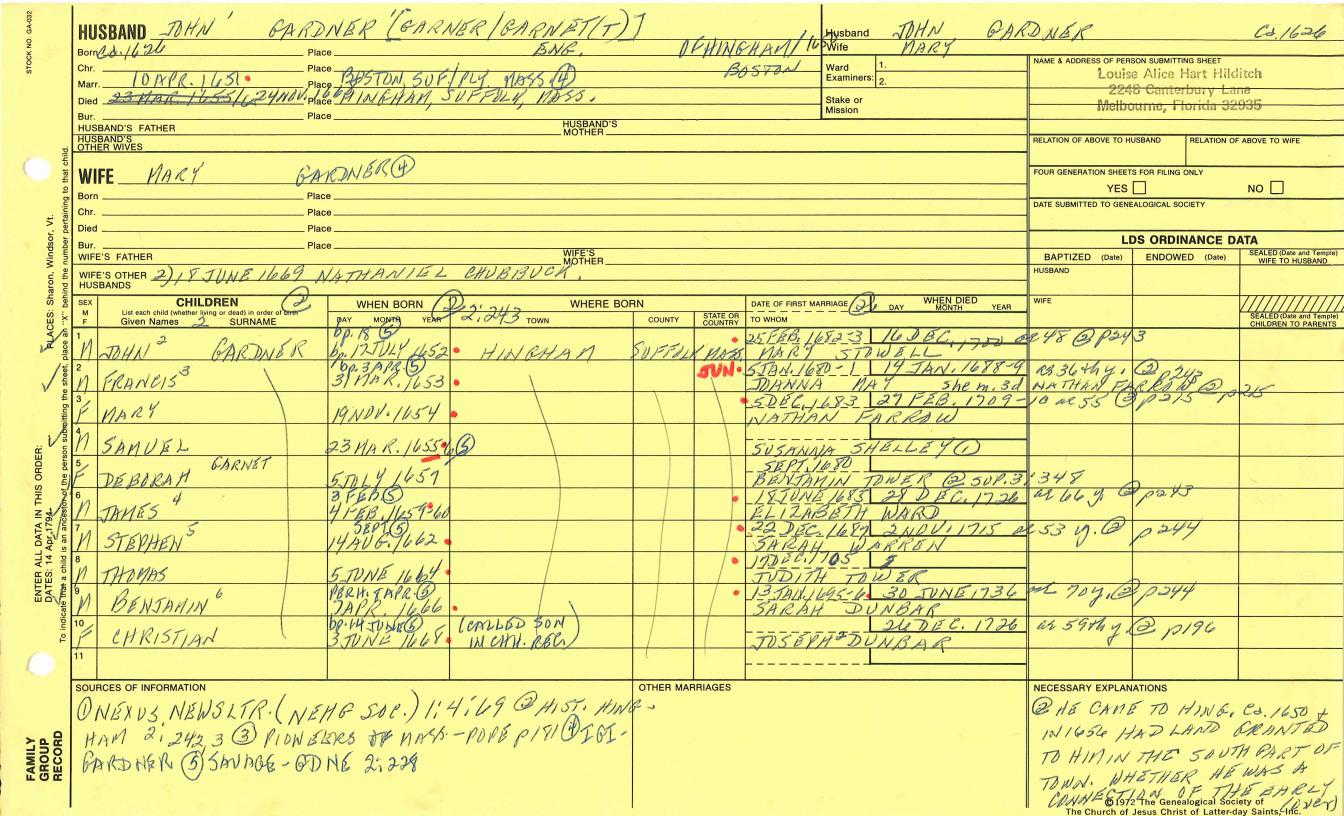 STOCK NO. GA-032
HUSBAND JOHN' GARDNER [GARNER/GARNET(T)]
Born Ca. 1626 Place ENG. OF HINGHAM/
Chr. Place BOSTON
Marr. 10 APR. 1651 Place BOSTON, SUF/PLY, MASS. ④
Died 23 MAR. 1655/6 24 NOV. Place HINGHAM, SUFFOLK, MASS.
Bur. Place
HUSBAND'S FATHER HUSBAND'S MOTHER
HUSBAND'S OTHER WIVES
Husband JOHN GARDNER Ca. 1626
Wife MARY
Ward Examiners: 1.
2.
Stake or Mission
NAME & ADDRESS OF PERSON SUBMITTING SHEET
Louise Alice Hart Hilditch
2248 Canterbury Lane
Melbourne, Florida 32935
RELATION OF ABOVE TO HUSBAND RELATION OF ABOVE TO WIFE
FOUR GENERATION SHEETS FOR FILING ONLY
YES NO
DATE SUBMITTED TO GENEALOGICAL SOCIETY
WIFE MARY GARDNER ④
Born Place
Chr. Place
Died Place
Bur. Place
WIFE'S FATHER WIFE'S MOTHER
WIFE'S OTHER HUSBANDS 2) 18 JUNE 1669 NATHANIEL CHUBBUCK.
LDS ORDINANCE DATA
BAPTIZED (Date) ENDOWED (Date) SEALED (Date and Temple) WIFE TO HUSBAND
HUSBAND
WIFE
SEALED (Date and Temple) CHILDREN TO PARENTS
SEX M F CHILDREN ② WHEN BORN ② 2:243 WHERE BORN DATE OF FIRST MARRIAGE WHEN DIED
List each child (whether living or dead) in order of birth
Given Names 2 SURNAME DAY MONTH YEAR TOWN COUNTY STATE OR COUNTRY TO WHOM DAY MONTH YEAR
bp. 18 ⑤ 25 FEB. 1682-3 16 DEC. ae 48 @ p243
1 M JOHN 2 GARDNER bp. 17 JULY 1652 HINGHAM SUFFOLK MASS MARY STOWELL
bp. 3 APR. ⑤ JUN. 5 JAN. 1680-1 19 JAN. 1688-9 ae 36thy. ② p243
2 M FRANCIS 3 31 MAR. 1653 JOANNA MAY she m. 3d NATHAN FARROW ② p215
5 DEC. 1683 27 FEB. 1709-10 ae 55 ② p215
3 F MARY 19 NOV. 1654 NATHAN FARROW
4 M SAMUEL 23 MAR. 1655/6 ⑤ SUSANNA SHELLEY ①
GARNET SEPT. 1680
5 F DEBORAH 5 JULY 1657 BENJAMIN TOWER ② SUP. 3:348
3 FEB ⑤ 18 JUNE 1685 28 DEC. 1726 ae 66 y ② p243
6 M JAMES 4 4 FEB. 1659-60 ELIZABETH WARD
SEPT ⑤ 22 DEC. 2 NOV. 1715 ae 53 y. ② p244
7 M STEPHEN 5 14 AUG. 1662 SARAH WARREN
17 DEC. 1705
8 M THOMAS 5 JUNE 1664 JUDITH TOWER
PERH. 7 APR. ⑤ 13 JAN. 1695-6 30 JUNE 1736 ae 70 y. ② p244
9 M BENJAMIN 6 7 APR. 1666 SARAH DUNBAR
bp. 14 JUNE ⑤ (CALLED SON 26 DEC. 1726 ae 59th y ② p196
10 F CHRISTIAN 3 JUNE 1668 IN CHH. REC.) JOSEPH 2 DUNBAR
11
SOURCES OF INFORMATION
① NEXUS, NEWSLTR. (NEHG SOC.) 1:4:69 ② HIST. HING-
HAM 2:242,3 ③ PIONEERS OF MASS - POPE p181 ④ IGI -
GARDNER ⑤ SAVAGE - GDNE 2:228
OTHER MARRIAGES
NECESSARY EXPLANATIONS
② HE CAME TO HING. Ca. 1650 +
IN 1656 HAD LAND GRANTED
TO HIM IN THE SOUTH PART OF
TOWN. WHETHER HE WAS A
CONNECTION OF THE EARLY
(over)
©1972 The Genealogical Society of
The Church of Jesus Christ of Latter-day Saints, Inc.
ENTER ALL DATA IN THIS ORDER:
DATES: 14 Apr 1794
PLACES: Sharon, Windsor, Vt.
To indicate that a child is an ancestor of the person submitting the sheet, place an "X" behind the number pertaining to that child.
FAMILY GROUP RECORD